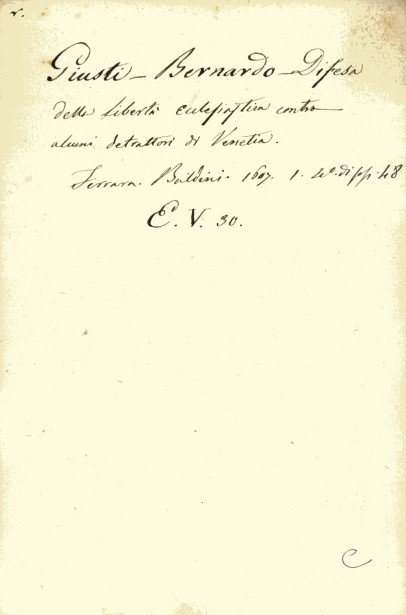 r.
Giusti - Bernardo - Difesa
della libertà eclesiastica contro
alcuni detrattori di Venetia.
Ferrara. Baldini. 1607. 1. 4º. di pp. 48
E. V. 30.
C